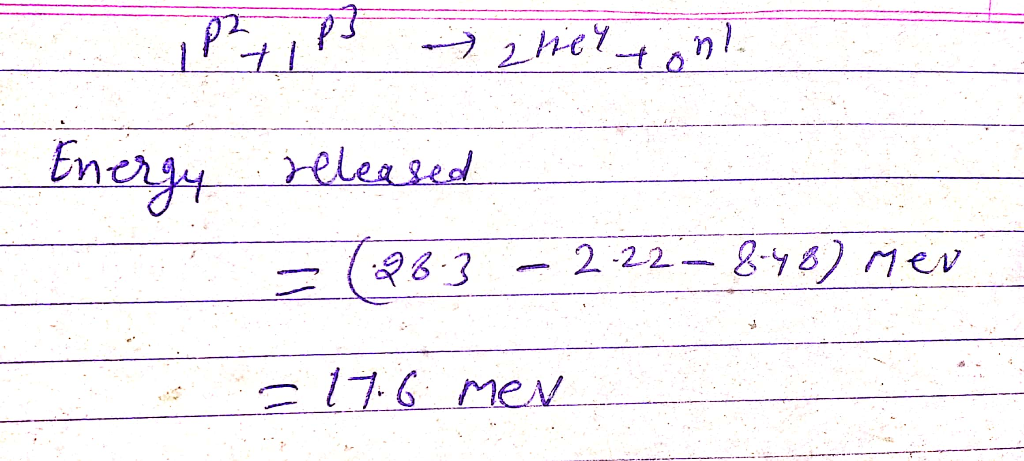 ₁P² + ₁P³ → ₂He⁴ + ₀n¹
Energy released
= (28.3 - 2.22 - 8.48) MeV
= 17.6 MeV